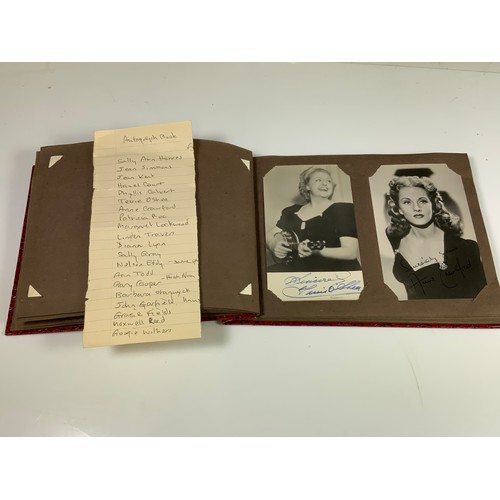 Autograph Book
Sally Ann Howes
Jean Simmons
Jean Kent
Hazel Court
Phyllis Calvert
Tessie O'Shea
Anne Crawford
Patricia Roc
Margaret Lockwood
Linden Travers
Diana Lynn
Sally Gray
Nelson Eddy
Ann Todd
Gary Cooper
Barbara Stanwyck
John Garfield
Gracie Fields
Maxwell Reed
Googie Withers
Sincerely
Sincerely
Hazel Court